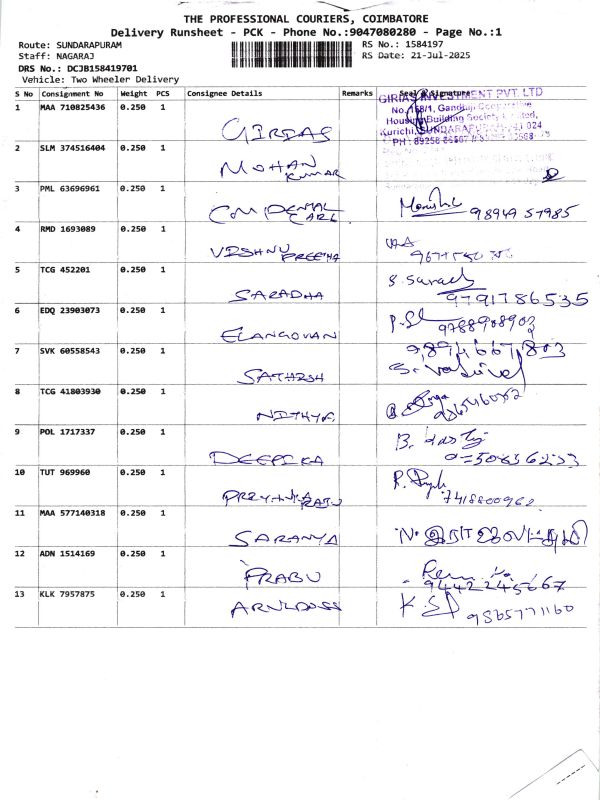 THE PROFESSIONAL COURIERS, COIMBATORE
Delivery Runsheet - PCK - Phone No.:9047080280 - Page No.:1
Route: SUNDARAPURAM RS No.: 1584197
Staff: NAGARAJ RS Date: 21-Jul-2025
DRS No.: DCJB158419701
Vehicle: Two Wheeler Delivery
S No Consignment No Weight PCS Consignee Details Remarks Seal & Signature
GIRIAS INVESTMENT PVT. LTD
No. 168/1, Gandhiji Cooperative
Housing Building Society Limited,
Kurichi, SUNDARAPURAM, 641 024
1 MAA 710825436 0.250 1 GIRIAS
2 SLM 374516404 0.250 1 MOHAN KUMAR
3 PML 63696961 0.250 1 COM DENTAL CARE 98949 57985
4 RMD 1693089 0.250 1 VISHNU PREETHA
5 TCG 452201 0.250 1 SARADHA 9791786535
6 EDQ 23903073 0.250 1 ELANGOVAN 9788908903
7 SVK 60558543 0.250 1 SATHISH 9894667803
8 TCG 41803930 0.250 1 NITHYA
9 POL 1717337 0.250 1 DEEPIKA
10 TUT 969960 0.250 1 7418800962
11 MAA 577140318 0.250 1 SARANYA
12 ADN 1514169 0.250 1 PRABU 9442245667
13 KLK 7957875 0.250 1 ARULDOSS 9865771160